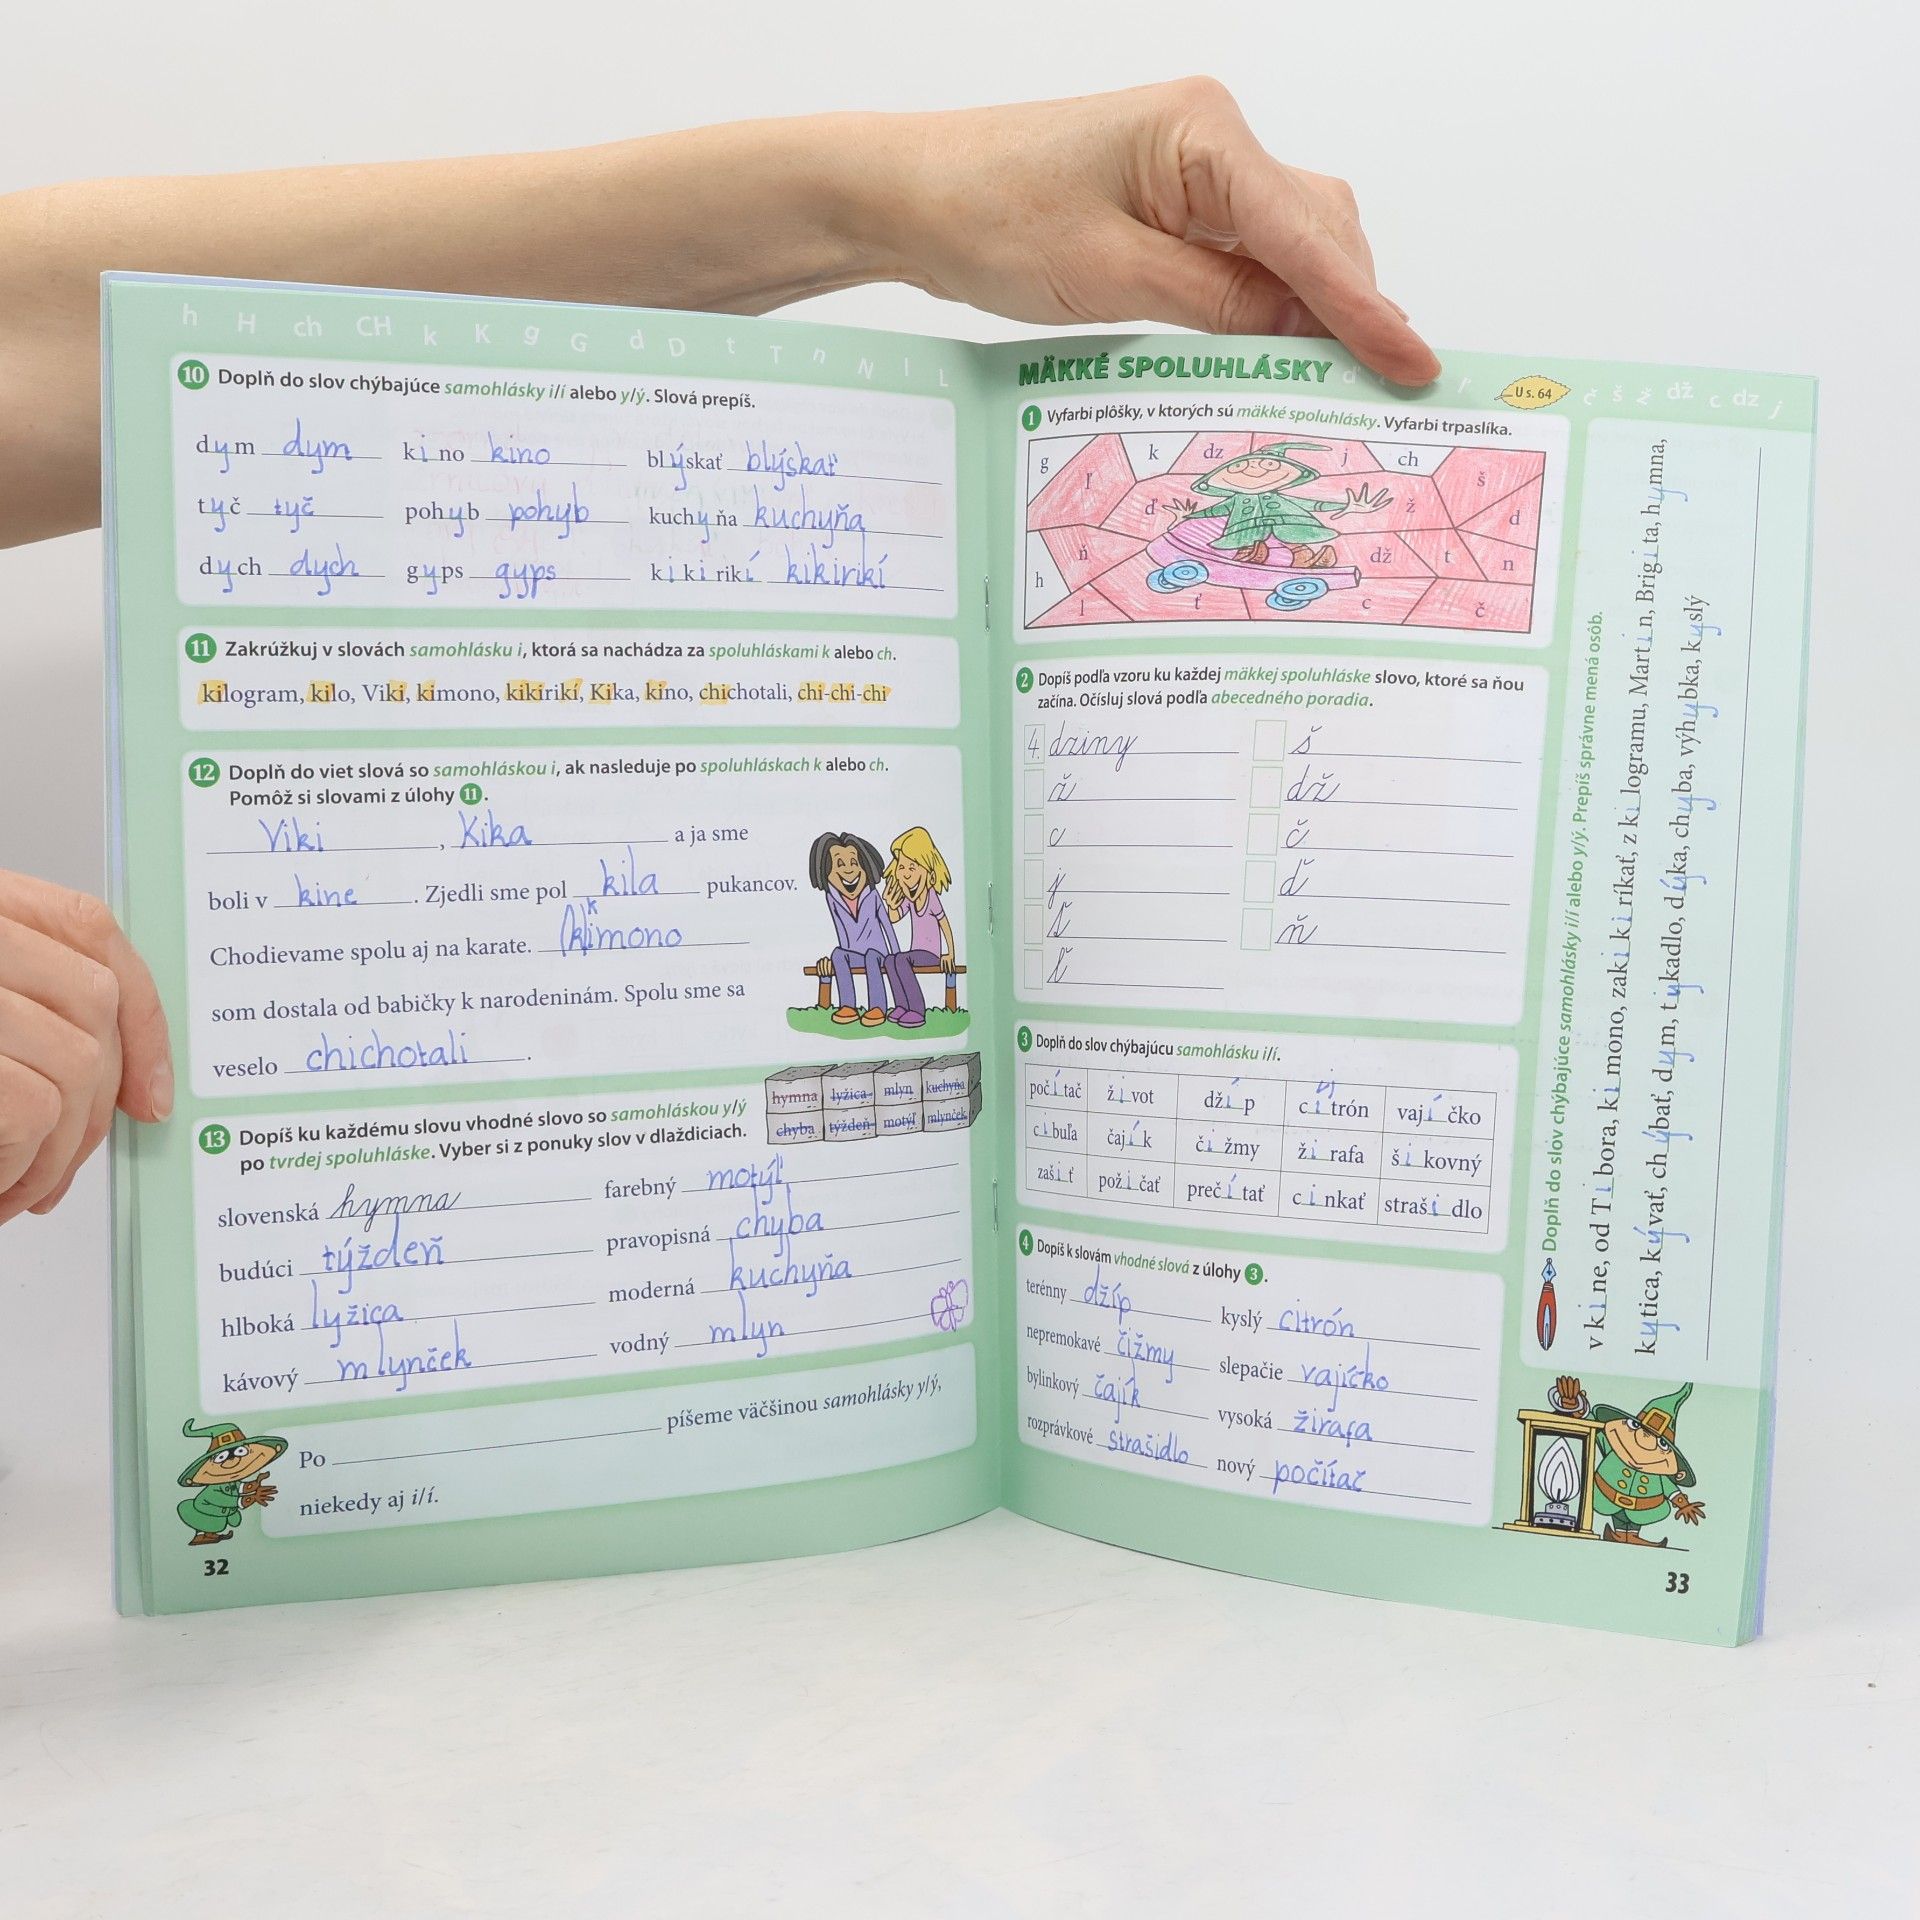 h H ch CH k K g G d D t T n N l L
10 Doplň do slov chýbajúce samohlásky i/í alebo y/ý. Slová prepíš.
dym dym ki no kino blýskať blýskať
tyč tyč pohyb pohyb kuchyňa kuchyňa
dych dych gyps gyps kikirikí kikirikí
11 Zakrúžkuj v slovách samohlásku i, ktorá sa nachádza za spoluhláskami k alebo ch.
kilogram, kilo, Viki, kimono, kikirikí, Kika, kino, chichotali, chi-chi-chi
12 Doplň do viet slová so samohláskou i, ak nasleduje po spoluhláskach k alebo ch.
Pomôž si slovami z úlohy 11.
Viki, Kika a ja sme
boli v kine. Zjedli sme pol kila pukancov.
Chodievame spolu aj na karate. kimono
som dostala od babičky k narodeninám. Spolu sme sa
veselo chichotali.
hymna lyžica mlyn kuchyňa
chyba týždeň motýľ mlynček
13 Dopíš ku každému slovu vhodné slovo so samohláskou y/ý
po tvrdej spoluhláske. Vyber si z ponuky slov v dlaždiciach.
slovenská hymna farebný motýľ
budúci týždeň pravopisná chyba
hlboká lyžica moderná kuchyňa
kávový mlynček vodný mlyn
Po píšeme väčšinou samohlásky y/ý,
niekedy aj i/í.
32
MÄKKÉ SPOLUHLÁSKY ď ľ U s. 64 č š ž dž c dz j
1 Vyfarbi plôšky, v ktorých sú mäkké spoluhlásky. Vyfarbi trpaslíka.
g k dz j ch š
ľ ď ž d
h ň dž t n
l ť c č
2 Dopíš podľa vzoru ku každej mäkkej spoluhláske slovo, ktoré sa ňou
začína. Očísluj slová podľa abecedného poradia.
4. dziny š
ž dž
c č
j ď
ť ň
ľ
3 Doplň do slov chýbajúcu samohlásku i/í.
počítač život džíp citrón vajíčko
cibuľa čajík čižmy žirafa šikovný
zašiť požičať prečítať cinkať strašidlo
4 Dopíš k slovám vhodné slová z úlohy 3.
terénny džíp kyslý citrón
nepremokavé čižmy slepačie vajíčko
bylinkový čajík vysoká žirafa
rozprávkové strašidlo nový počítač
Doplň do slov chýbajúce samohlásky i/í alebo y/ý. Prepíš správne mená osôb.
v kine, od Tibora, kimono, zakikiríkať, z kilogramu, Martin, Brigita, hymna,
kytica, kývať, chýbať, dym, tykadlo, dýka, chyba, výhybka, kyslý
33